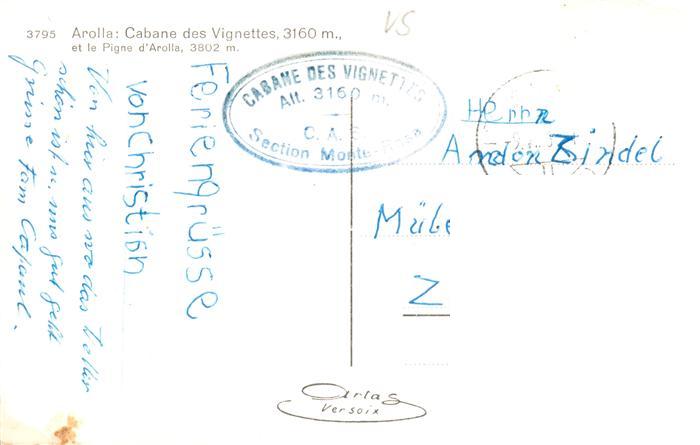 3795 Arolla: Cabane des Vignettes, 3160 m.,
et le Pigne d'Arolla, 3802 m.
VS
CABANE DES VIGNETTES
Alt. 3160 m.
C. A. S.
Section Monte-Rosa
Feriengrüsse
von Christian
Von hier aus wo das
schön ist u. uns gut geht
Grüsse Fam
Herrn
Zindel
Müle
Z
Artas
Versoix